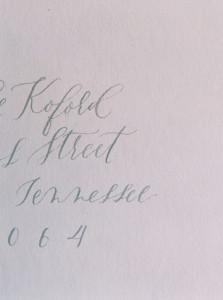 Koford
Street
Tennessee
064